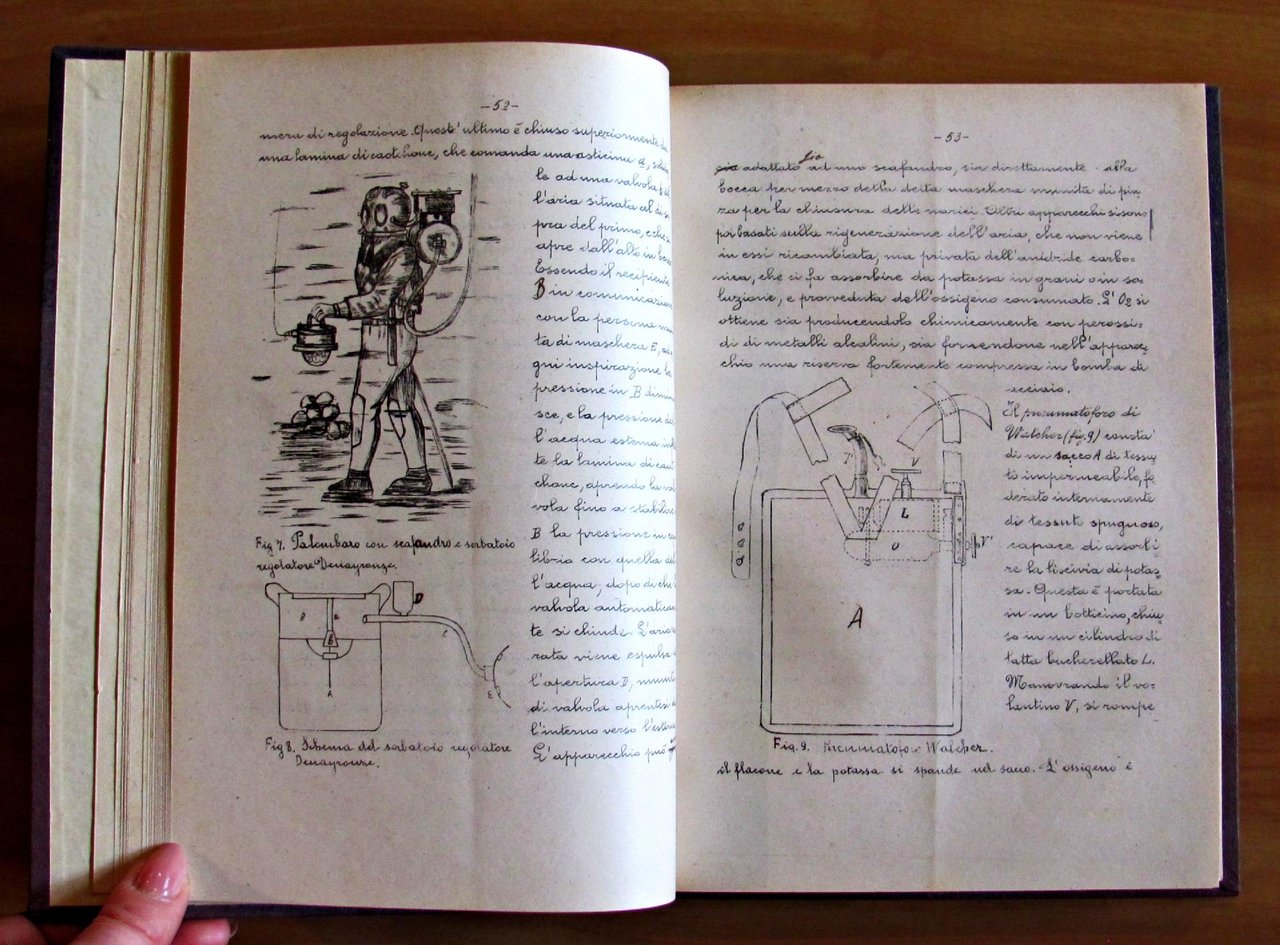 -52-
mera di regolazione. Quest'ultimo è chiuso superiormente da
una lamina di caotchouc, che comanda una asticina a,
le ad una valvola
l'aria situata al di so
pra del primo, e che si
apre dall'alto in basso
Essendo il recipiente
B in comunicazione
con la persona mu
ta di maschera E, ad o
gni inspirazione la
pressione in B diminui
sce, e la pressione del
l'acqua esterna
te la lamina di caut
chouc, aprendo la val
vola fino a stabilire
B la pressione in
librio con quella del
l'acqua, dopo di che
valvola automaticamen
te si chiude. L'aria
rata viene espulsa
l'apertura D, munita
di valvola aprentesi
l'interno verso l'esterno
L'apparecchio può
Fig 7. Palombaro con scafandro e serbatoio
regolatore Denayronze.
D
B
A
D
C
E
Fig 8. Schema del serbatoio regolatore
Denayronze.
-53-
sia adattato sia ad uno scafandro, sia direttamente alla
bocca per mezzo della detta maschera munita di pin
za per la chiusura delle narici. Altri apparecchi si sono
poi basati sulla rigenerazione dell'aria, che non viene
in essi ricambiata, ma privata dell'anidride carbo-
nica, che si fa assorbire da potassa in grani o in so
luzione, e provveduta dell'ossigeno consumato. L'O2 si
ottiene sia producendolo chimicamente con perossi-
di di metalli alcalini, sia fornendone nell'apparec-
chio una riserva fortemente compressa in bomba di
acciaio.
Il pneumatoforo di
Walcher (fig. 9) consta
di un sacco A di tessu
to impermeabile, fo
derato internamente
di tessuto spugnoso,
capace di assorbi
re la liscivia di potas-
sa. Questa è portata
in un botticino, chiu
so in un cilindro di
latta bucherellato L.
Manovrando il vo-
lantino V, si rompe
V
L
O
V'
A
Fig. 9. Pneumatoforo Walcher.
il flacone e la potassa si spande nel sacco. L'ossigeno è